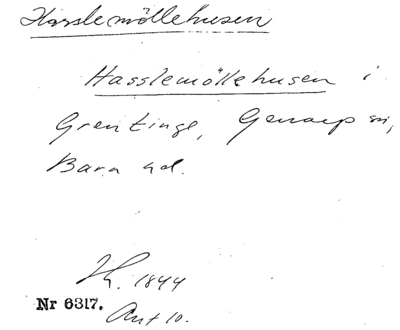 Hasslemöllehusen
Hasslemöllehusen i
Grentinge, Genarp sn,
Bara hd.
Hfl. 1844
Nr 6317.
Ant 10.